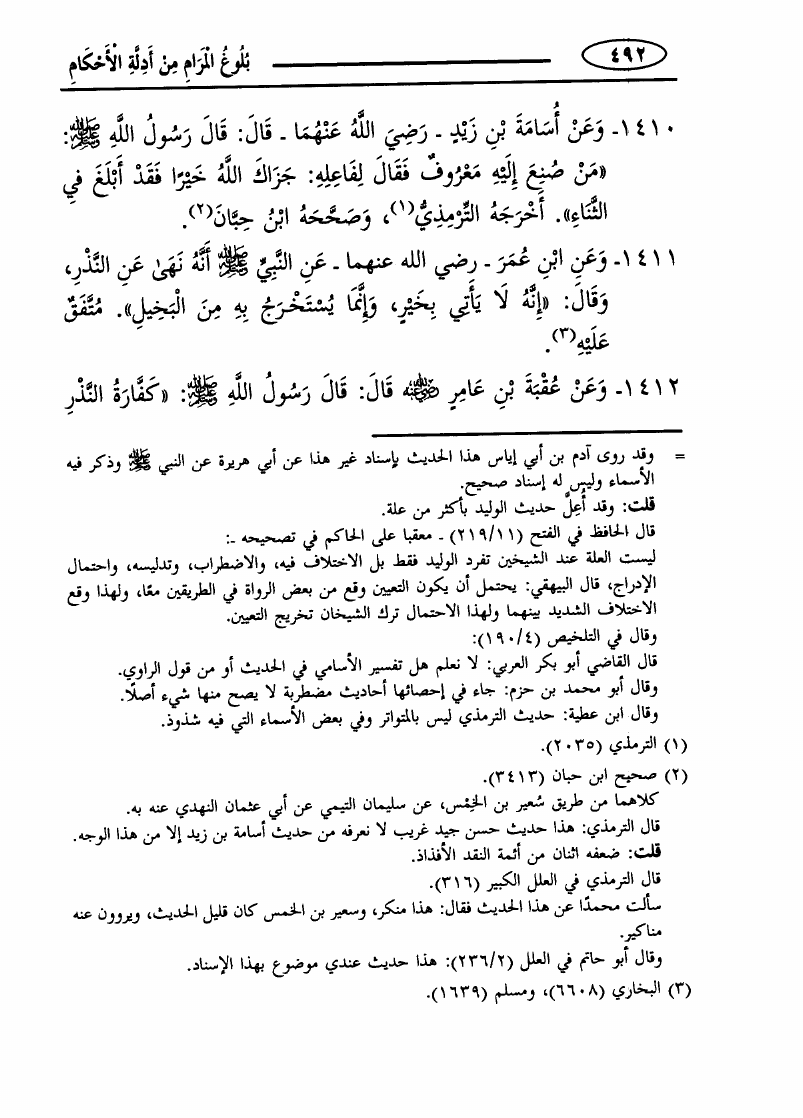 ٤٩٢ بُلُوغُ الْمَرَامِ مِنْ أَدِلَّةِ الْأَحْكَامِ
١٤١٠ـ وَعَنْ أُسَامَةَ بْنِ زَيْدٍ ـ رَضِيَ اللَّهُ عَنْهُمَا ـ قَالَ: قَالَ رَسُولُ اللَّهِ ﷺ:
«مَنْ صُنِعَ إِلَيْهِ مَعْرُوفٌ فَقَالَ لِفَاعِلِهِ: جَزَاكَ اللَّهُ خَيْرًا فَقَدْ أَبْلَغَ فِي
الثَّنَاءِ». أَخْرَجَهُ التِّرْمِذِيُّ(١)، وَصَحَّحَهُ ابْنُ حِبَّانَ(٢).
١٤١١ـ وَعَنِ ابْنِ عُمَرَ ـ رضي الله عنهما ـ عَنِ النَّبِيِّ ﷺ أَنَّهُ نَهَىٰ عَنِ النَّذْرِ،
وَقَالَ: «إِنَّهُ لَا يَأْتِي بِخَيْرٍ، وَإِنَّمَا يُسْتَخْرَجُ بِهِ مِنَ الْبَخِيلِ». مُتَّفَقٌ
عَلَيْهِ(٣).
١٤١٢ـ وَعَنْ عُقْبَةَ بْنِ عَامِرٍ رضي الله عنه قَالَ: قَالَ رَسُولُ اللَّهِ ﷺ: «كَفَّارَةُ النَّذْرِ
= وقد روى آدم بن أبي إياس هذا الحديث بإسناد غير هذا عن أبي هريرة عن النبي ﷺ وذكر فيه
الأسماء وليس له إسناد صحيح.
قلت: وقد أُعِلَّ حديث الوليد بأكثر من علة.
قال الحافظ في الفتح (٢١٩/١١) ـ معقبا على الحاكم في تصحيحه ـ:
ليست العلة عند الشيخين تفرد الوليد فقط بل الاختلاف فيه، والاضطراب، وتدليسه، واحتمال
الإدراج، قال البيهقي: يحتمل أن يكون التعيين وقع من بعض الرواة في الطريقين معًا، ولهذا وقع
الاختلاف الشديد بينهما ولهذا الاحتمال ترك الشيخان تخريج التعيين.
وقال في التلخيص (١٩٠/٤):
قال القاضي أبو بكر العربي: لا نعلم هل تفسير الأسامي في الحديث أو من قول الراوي.
وقال أبو محمد بن حزم: جاء في إحصائها أحاديث مضطربة لا يصح منها شيء أصلًا.
وقال ابن عطية: حديث الترمذي ليس بالمتواتر وفي بعض الأسماء التي فيه شذوذ.
(١) الترمذي (٢٠٣٥).
(٢) صحيح ابن حبان (٣٤١٣).
كلاهما من طريق سُعير بن الخِمْس، عن سليمان التيمي عن أبي عثمان النهدي عنه به.
قال الترمذي: هذا حديث حسن جيد غريب لا نعرفه من حديث أسامة بن زيد إلا من هذا الوجه.
قلت: ضعفه اثنان من أئمة النقد الأفذاذ.
قال الترمذي في العلل الكبير (٣١٦).
سألت محمدًا عن هذا الحديث فقال: هذا منكر، وسعير بن الخمس كان قليل الحديث، ويروون عنه
مناكير.
وقال أبو حاتم في العلل (٢٣٦/٢): هذا حديث عندي موضوع بهذا الإسناد.
(٣) البخاري (٦٦٠٨)، ومسلم (١٦٣٩).